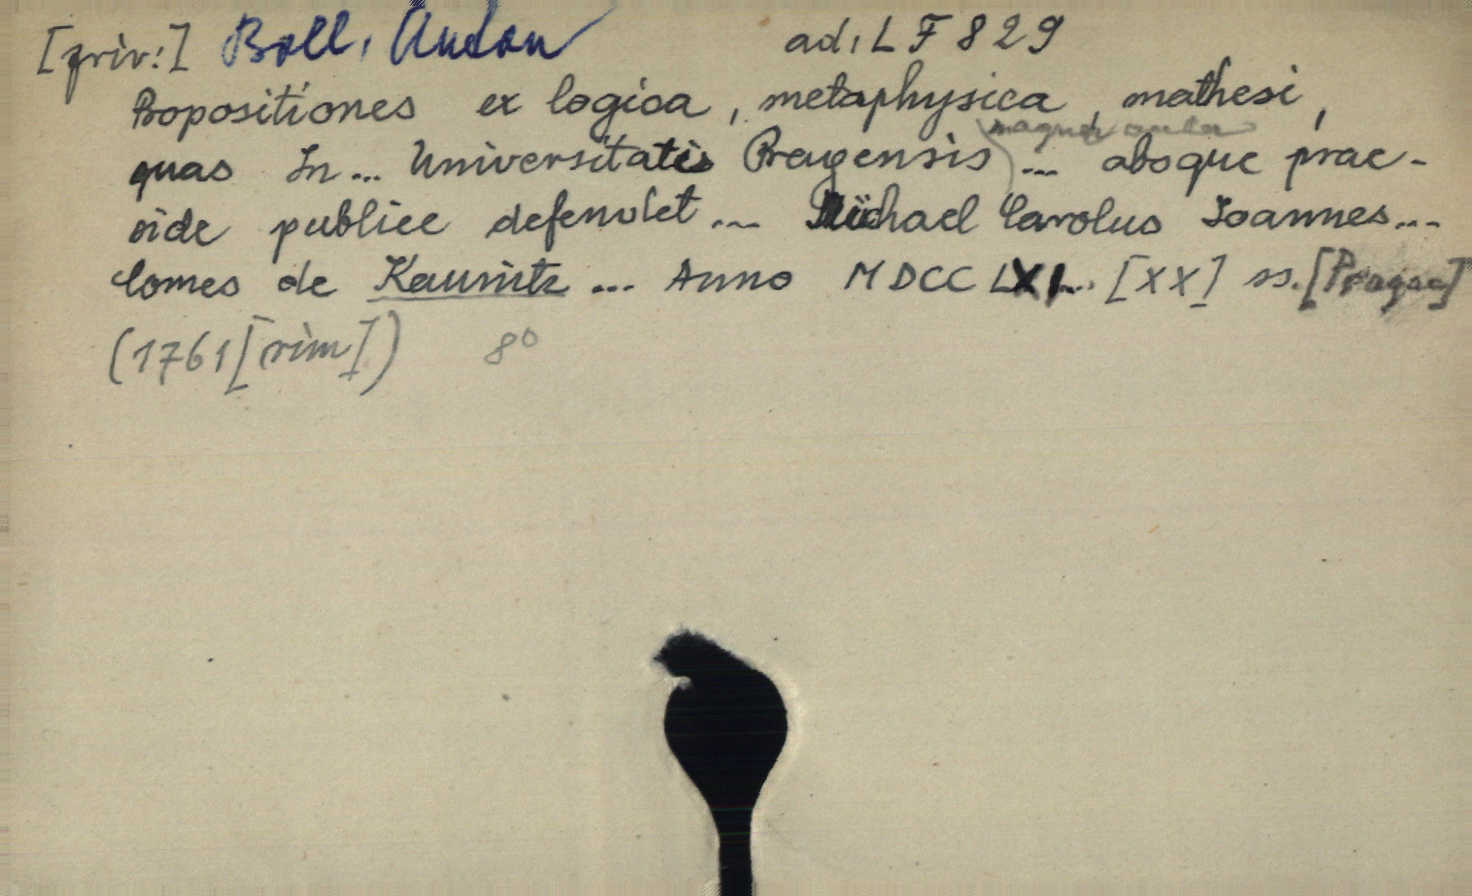 [priv:] Boll, Anton ad. LF 829
Propositiones ex logica, metaphysica, mathesi,
magna aula
quas In... Universitatis Pragensis ... absque prae-
side publice defendet ... Michael Carolus Joannes...
Comes de Kaunitz ... Anno MDCCLXI... [XX] ss. [Pragae]
(1761 [rim]) 8°